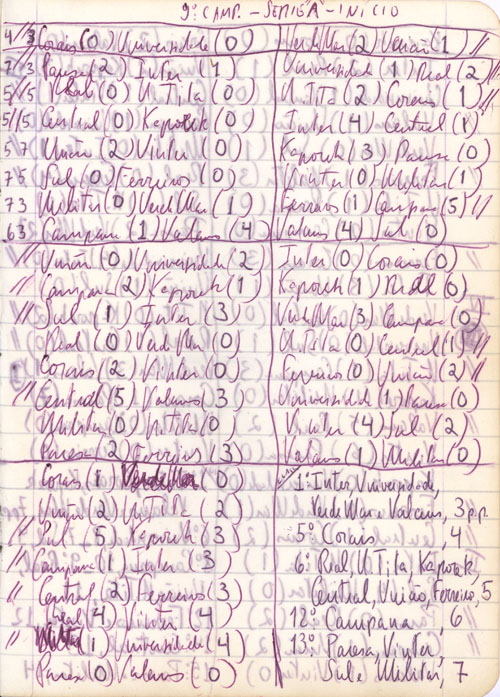 9º CAMP. - SERIE A - INICIO
4/3 Corais (0) Universidade (0) Verde Mar (2) União (1) //
7/3 Paresa (2) Inter (1) Universidade (1) Real (2) //
5//5 Real (0) U. Tila (0) U. Tila (2) Corais (1) //
5//5 Central (0) Kaporek (0) Inter (4) Central (1)
5 7 União (2) Vinter (0) Kaporek (3) Paresa (0)
7 5 Sul (0) Ferreiros (0) Vinter (0) Militar (1)
7 3 Militar (0) Verde Mar (1) Ferreiros (1) Campana (5) //
63 Campana (1) Valaus (4) Valaus (4) Sul (0)
// União (0) Universidade (2) Inter (0) Corais (0)
// Campana (2) Kaporek (1) Kaporek (1) Real (0)
// Sul (1) Inter (3) Verde Mar (3) Campana (0)
Real (0) Verde Mar (0) U. Tila (0) Central (1) //
Corais (2) Vinter (0) Ferreiros (0) União (2) //
// Central (5) Valaus (3) Universidade (1) Paresa (0)
Militar (0) U. Tila (0) Vinter (4) Sul (2)
Paresa (2) Ferreiros (3) Valaus (1) Militar (0)
Corais (1) Verde Mar (0)
União (2) U Tila (2)
// Sul (5) Kaporek (3)
// Campana (1) Inter (3)
// Central (2) Ferreiros (3)
Real (4) Vinter (4
// Militar (1) Universidade (4)
Paresa (0) Valaus (0)
1º: Inter, Universidade,
Verde Mar e Valaus, 3 p.p.
5º: Corais, 4
6º: Real, U. Tila, Kaporek,
Central, União, Ferreiros, 5
12º: Campana, 6
13º: Paresa, Vinter,
Sul e Militar, 7